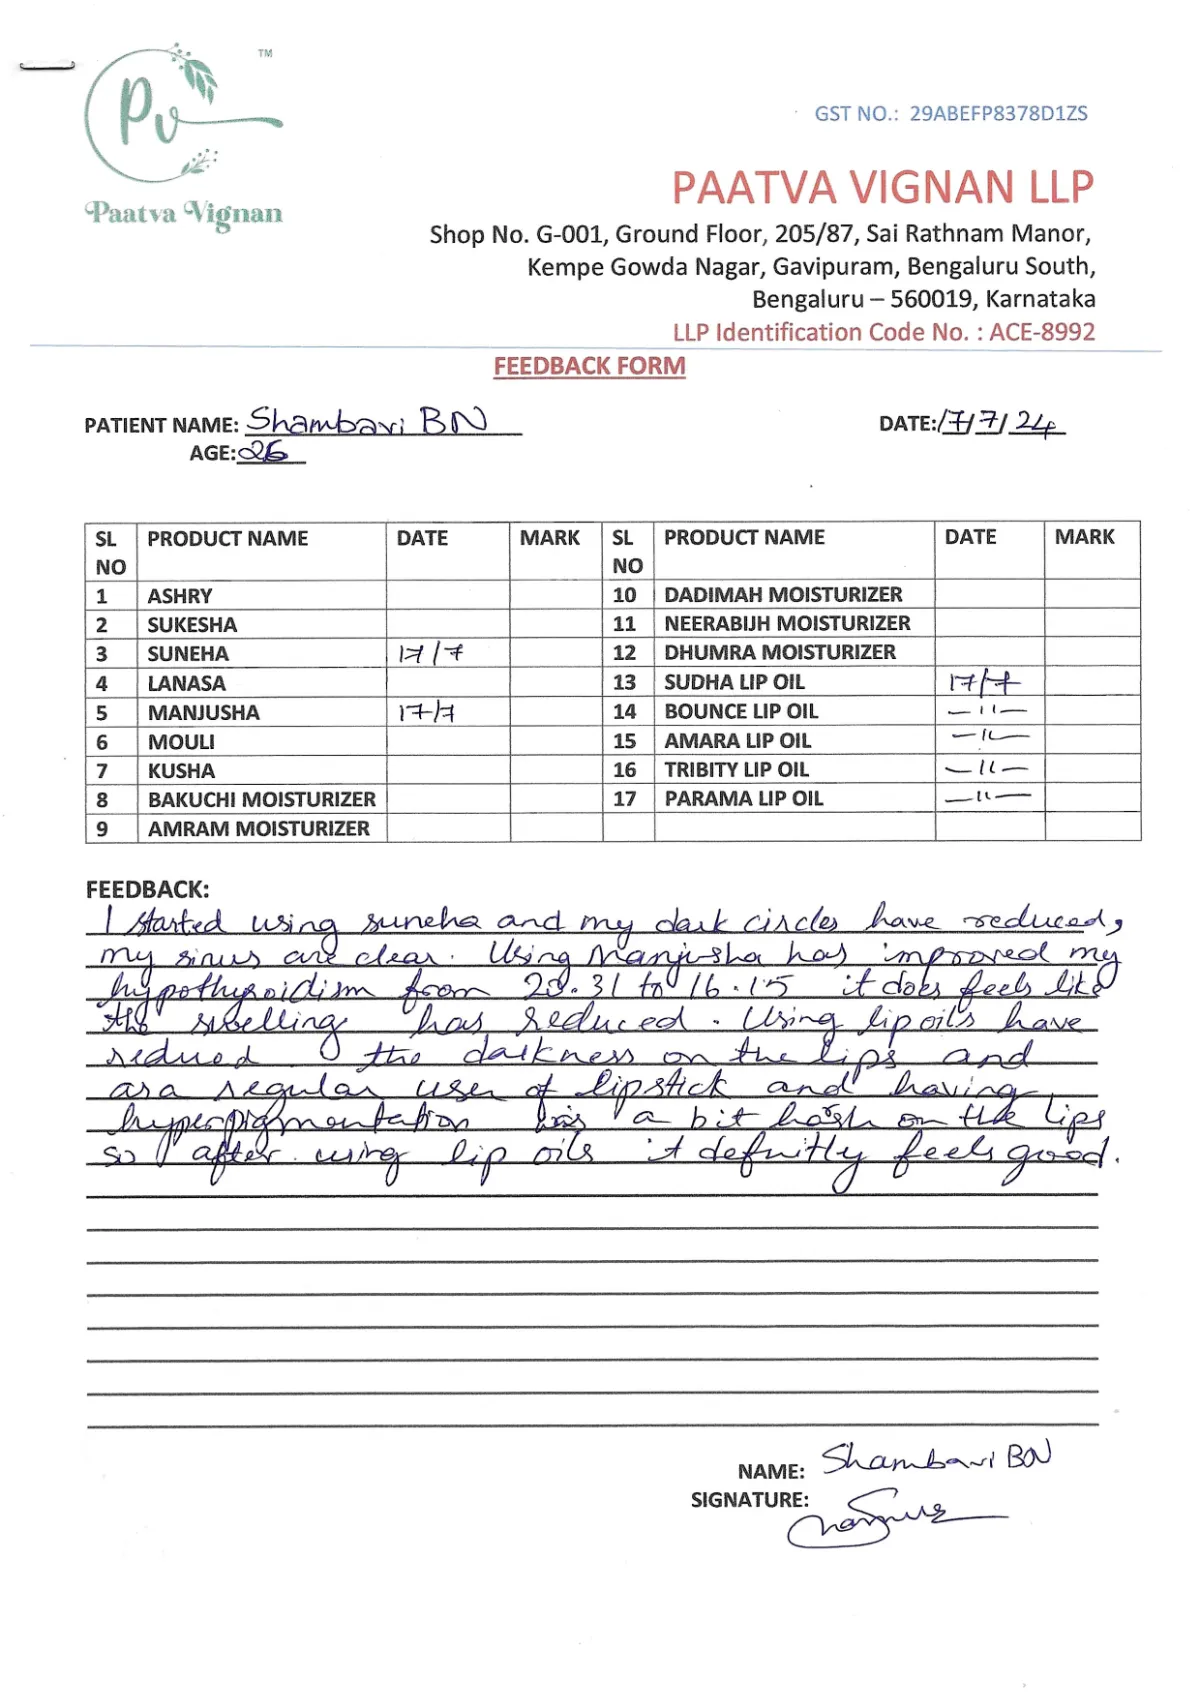 TM
Pv
Paatva Vignan
GST NO.: 29ABEFP8378D1ZS
PAATVA VIGNAN LLP
Shop No. G-001, Ground Floor, 205/87, Sai Rathnam Manor,
Kempe Gowda Nagar, Gavipuram, Bengaluru South,
Bengaluru – 560019, Karnataka
LLP Identification Code No. : ACE-8992
FEEDBACK FORM
PATIENT NAME: Shambavi BN DATE: 17/7/24
AGE: 26
SL NO PRODUCT NAME DATE MARK SL NO PRODUCT NAME DATE MARK
1 ASHRY 10 DADIMAH MOISTURIZER
2 SUKESHA 11 NEERABIJH MOISTURIZER
3 SUNEHA 17/7 12 DHUMRA MOISTURIZER
4 LANASA 13 SUDHA LIP OIL 17/7
5 MANJUSHA 17/7 14 BOUNCE LIP OIL —11—
6 MOULI 15 AMARA LIP OIL —11—
7 KUSHA 16 TRIBITY LIP OIL —11—
8 BAKUCHI MOISTURIZER 17 PARAMA LIP OIL —11—
9 AMRAM MOISTURIZER
FEEDBACK:
I started using suneha and my dark circles have reduced,
my sinus are clear. Using Manjusha has improved my
hypothyroidism from 20.31 to 16.15 it does feels like
the swelling has reduced. Using lip oils have
reduced the darkness on the lips and
as a regular user of lipstick and having
hyperpigmentation was a bit harsh on the lips
so after using lip oils it defnitly feels good.
NAME: Shambavi BN
SIGNATURE: